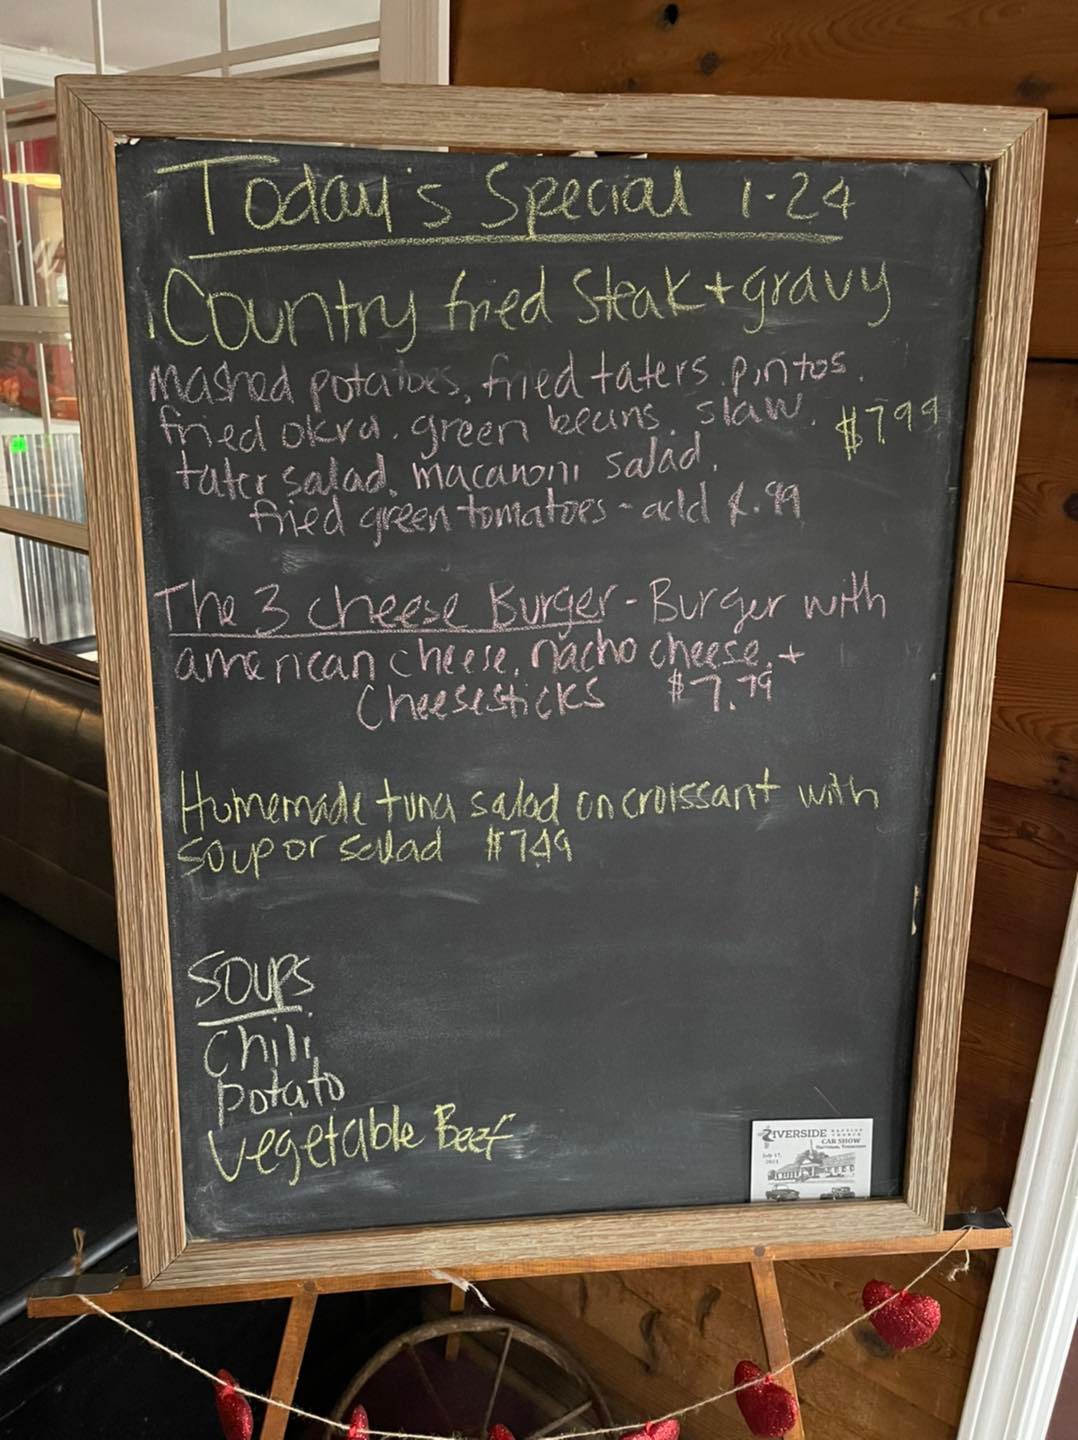 Today's Special 1-24
Country fried Steak + gravy
mashed potatoes, fried taters, pintos,
fried okra, green beans, slaw, $7.99
tater salad, macaroni salad,
fried green tomatoes - add $.99
The 3 cheese Burger - Burger with
american cheese, nacho cheese, +
Cheesesticks $7.79
Homemade tuna salad on croissant with
soup or salad $7.49
Soups
Chili
potato
Vegetable Beef
RIVERSIDE BAPTIST CHURCH
CAR SHOW
July 17,
2021